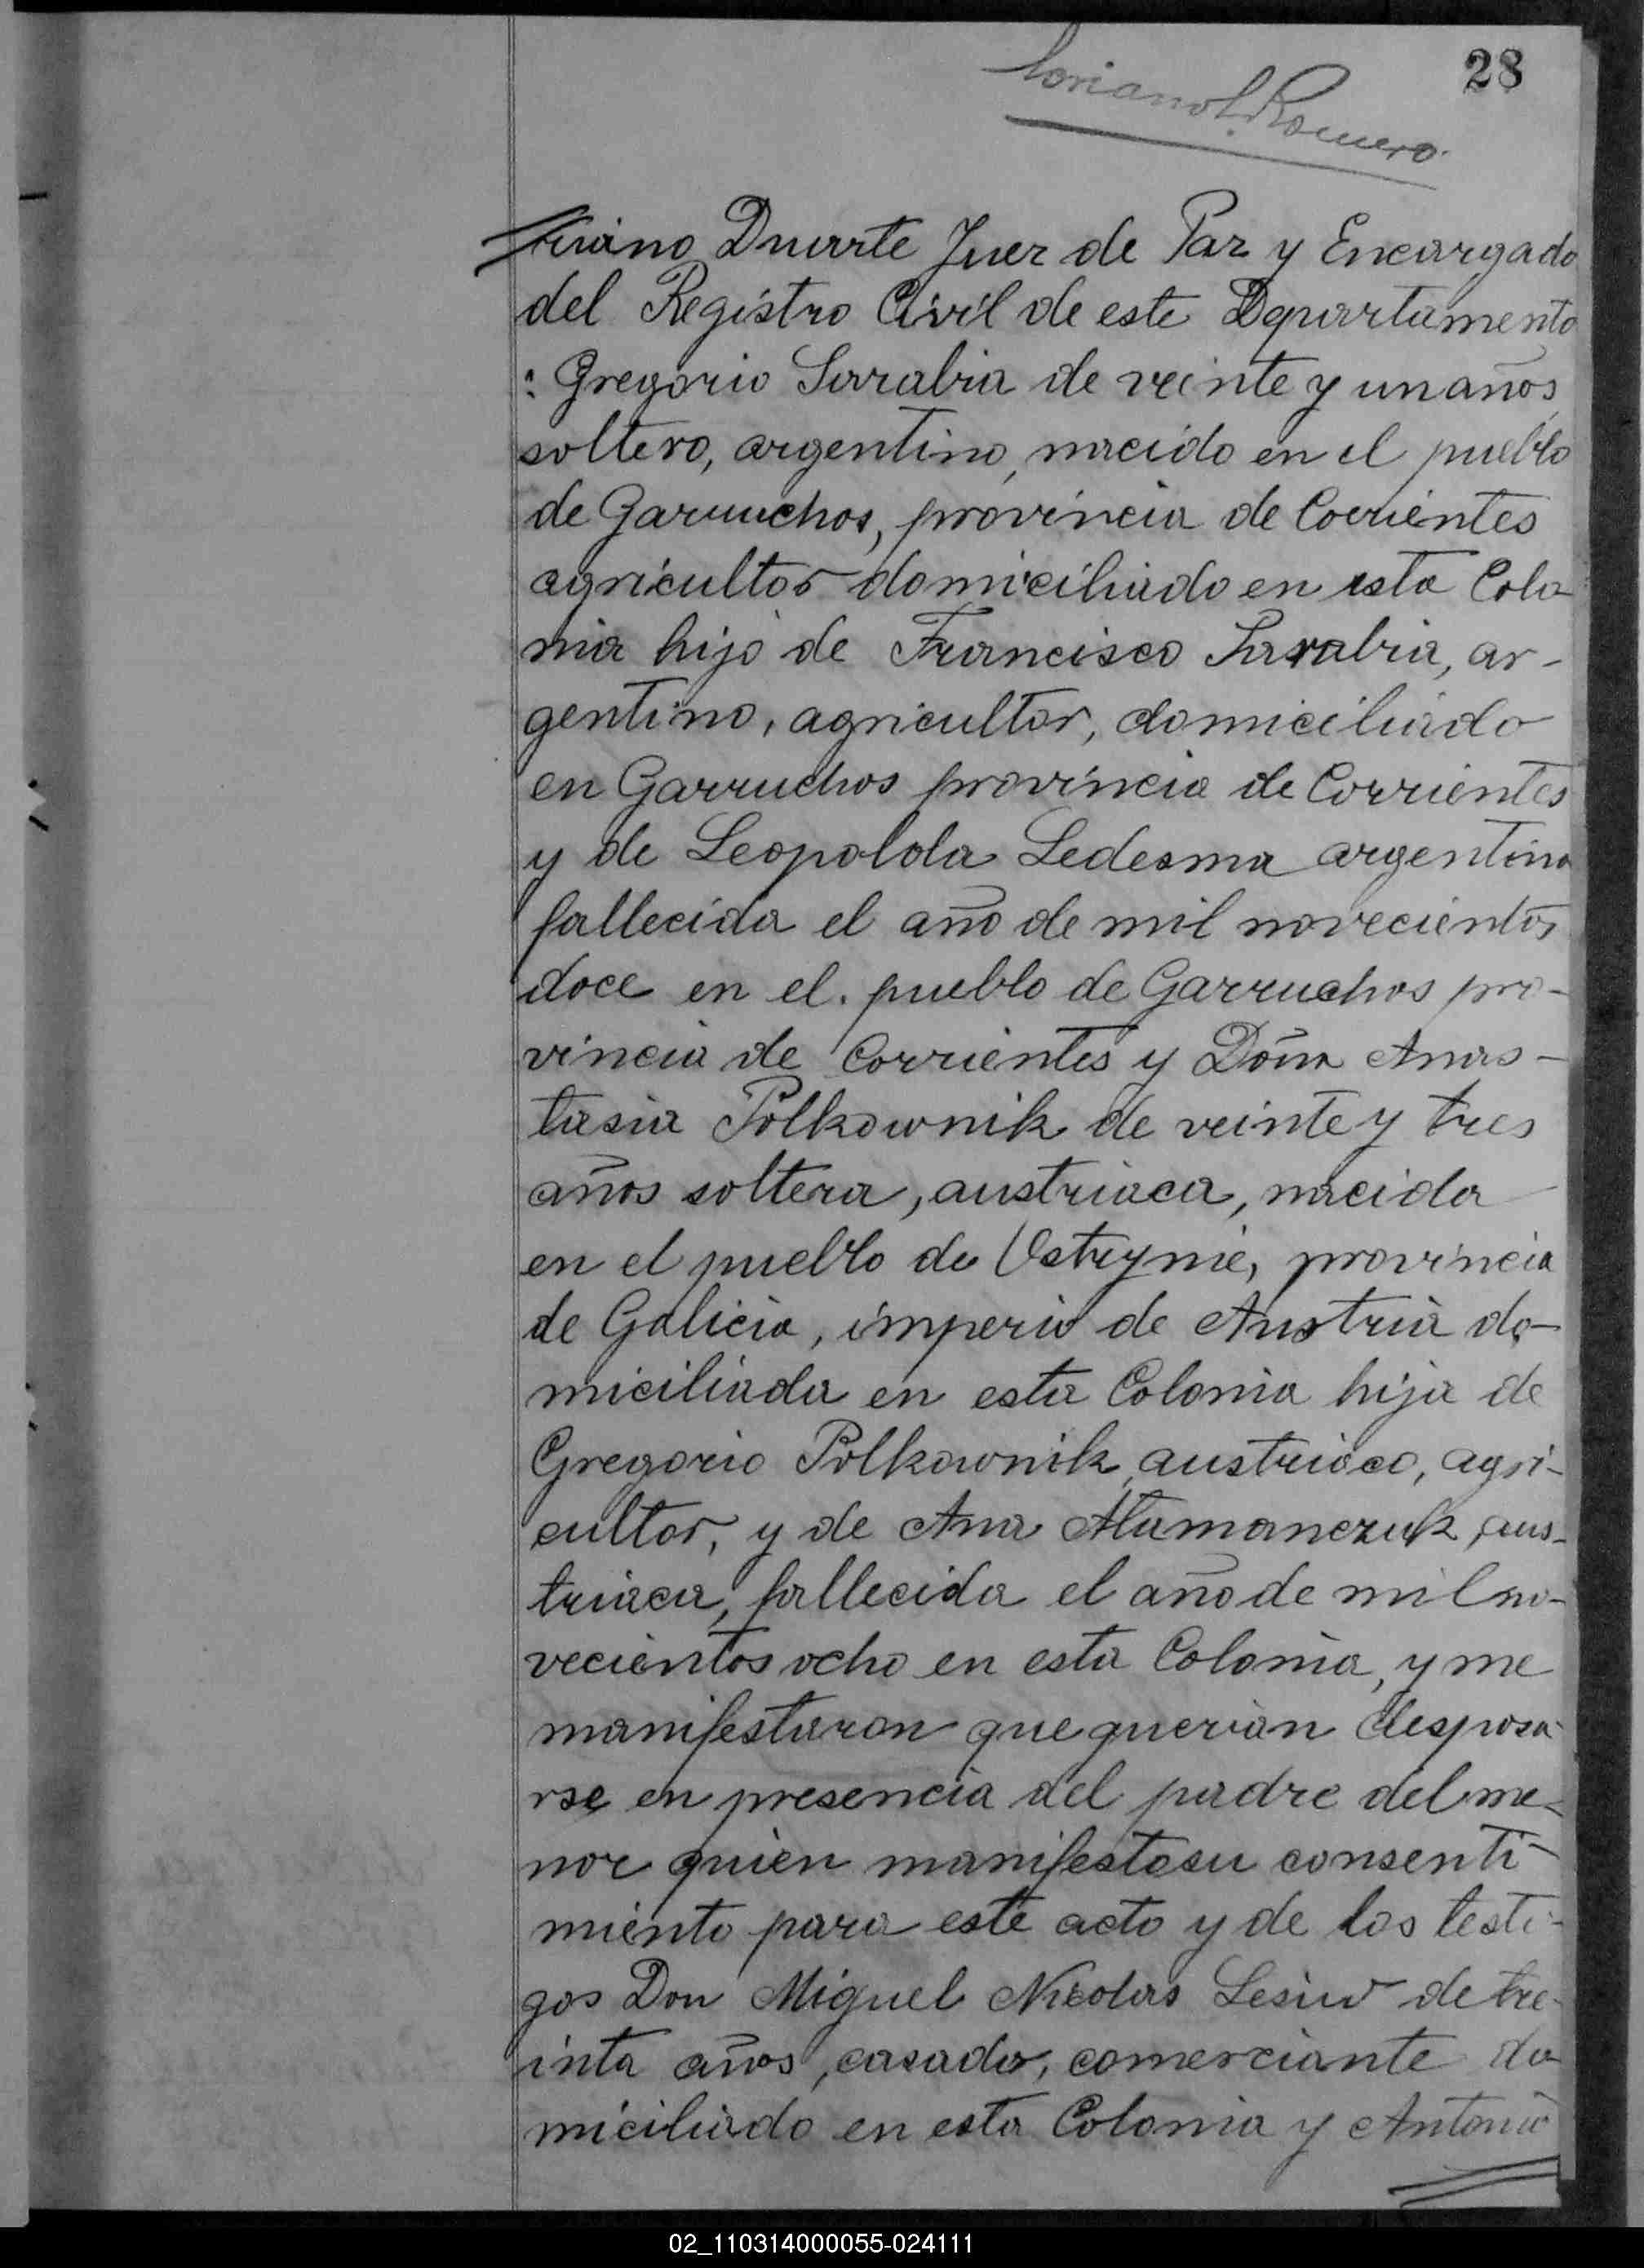 28
Romero
Duarte Juez de Paz y Encargado
del Registro Civil de este Departamento
: Gregorio Sarabia de veinte y un años
soltero, argentino, nacido en el pueblo
de Garruchos, provincia de Corrientes
agricultor domiciliado en esta Colo-
nia hijo de Francisco Sarabia, ar-
gentino, agricultor, domiciliado
en Garruchos provincia de Corrientes
y de Leopolda Ledesma argentina
fallecida el año de mil novecientos
doce en el. pueblo de Garruchos pro-
vincia de Corrientes y Doña Anas-
tasia Polkownik de veinte y tres
años soltera, austriaca, nacida
en el pueblo de provincia
de Galicia, imperio de Austria do-
miciliada en esta Colonia hija de
Gregorio Polkownik, austriaco, agri-
cultor, y de Ana Atamanczuk, aus-
triaca, fallecida el año de mil no-
vecientos ocho en esta Colonia, y me
manifestaron que querian desposa-
rse en presencia del padre del me-
nor quien manifesto su consenti-
miento para este acto y de los testi-
gos Don Miguel Nicolas Lesiw de tre-
inta años, casado, comerciante do-
miciliado en esta Colonia y Antonio
02_110314000055-024111